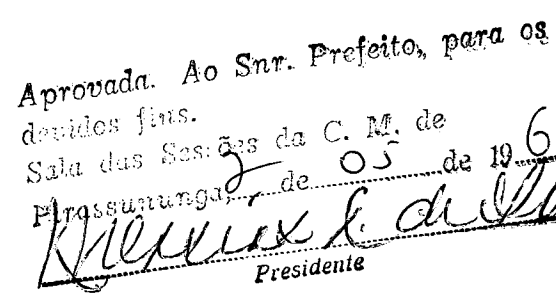 Aprovada. Ao Snr. Prefeito, para os
devidos fins.
Sala das Sessões da C. M. de
Pirassununga, 2 de 05 de 196
Presidente